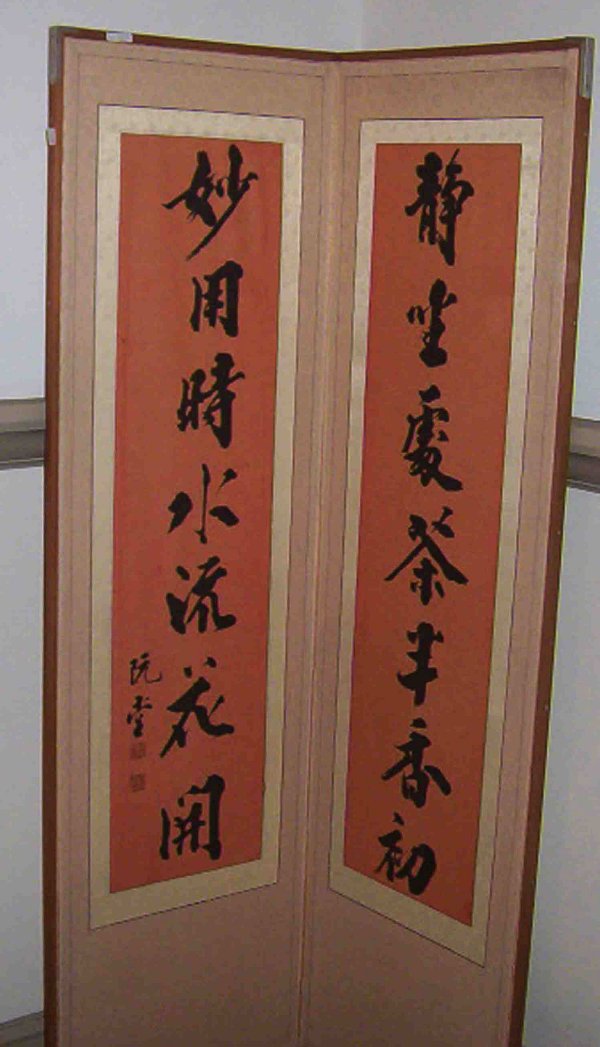 静坐處茶半香初
妙用時水流花開
阮堂